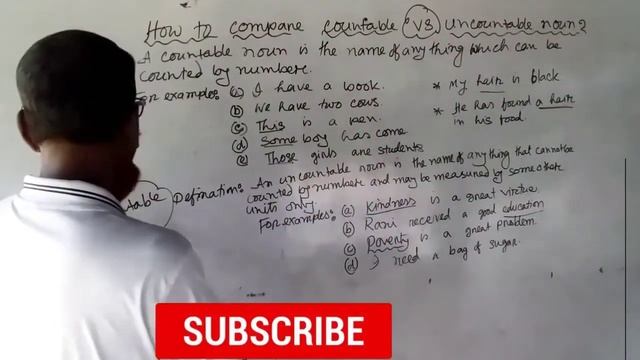 How to compare countable VS uncountable noun?
A countable noun is the name of any thing which can be
counted by numbers.
For examples: (a) I have a book. * My hair is black
(b) We have two cows. * He has found a hair
in his food.
(c) This is a pen.
(d) Some boy has come
(e) Those girls are students
Defination: An uncountable noun is the name of any thing that cannot be
counted by numbers and may be measured by some other
units only.
For examples: (a) Kindness is a great virtue.
(b) Rani received a good education
(c) Poverty is a great problem.
(d) I need a bag of sugar.
SUBSCRIBE